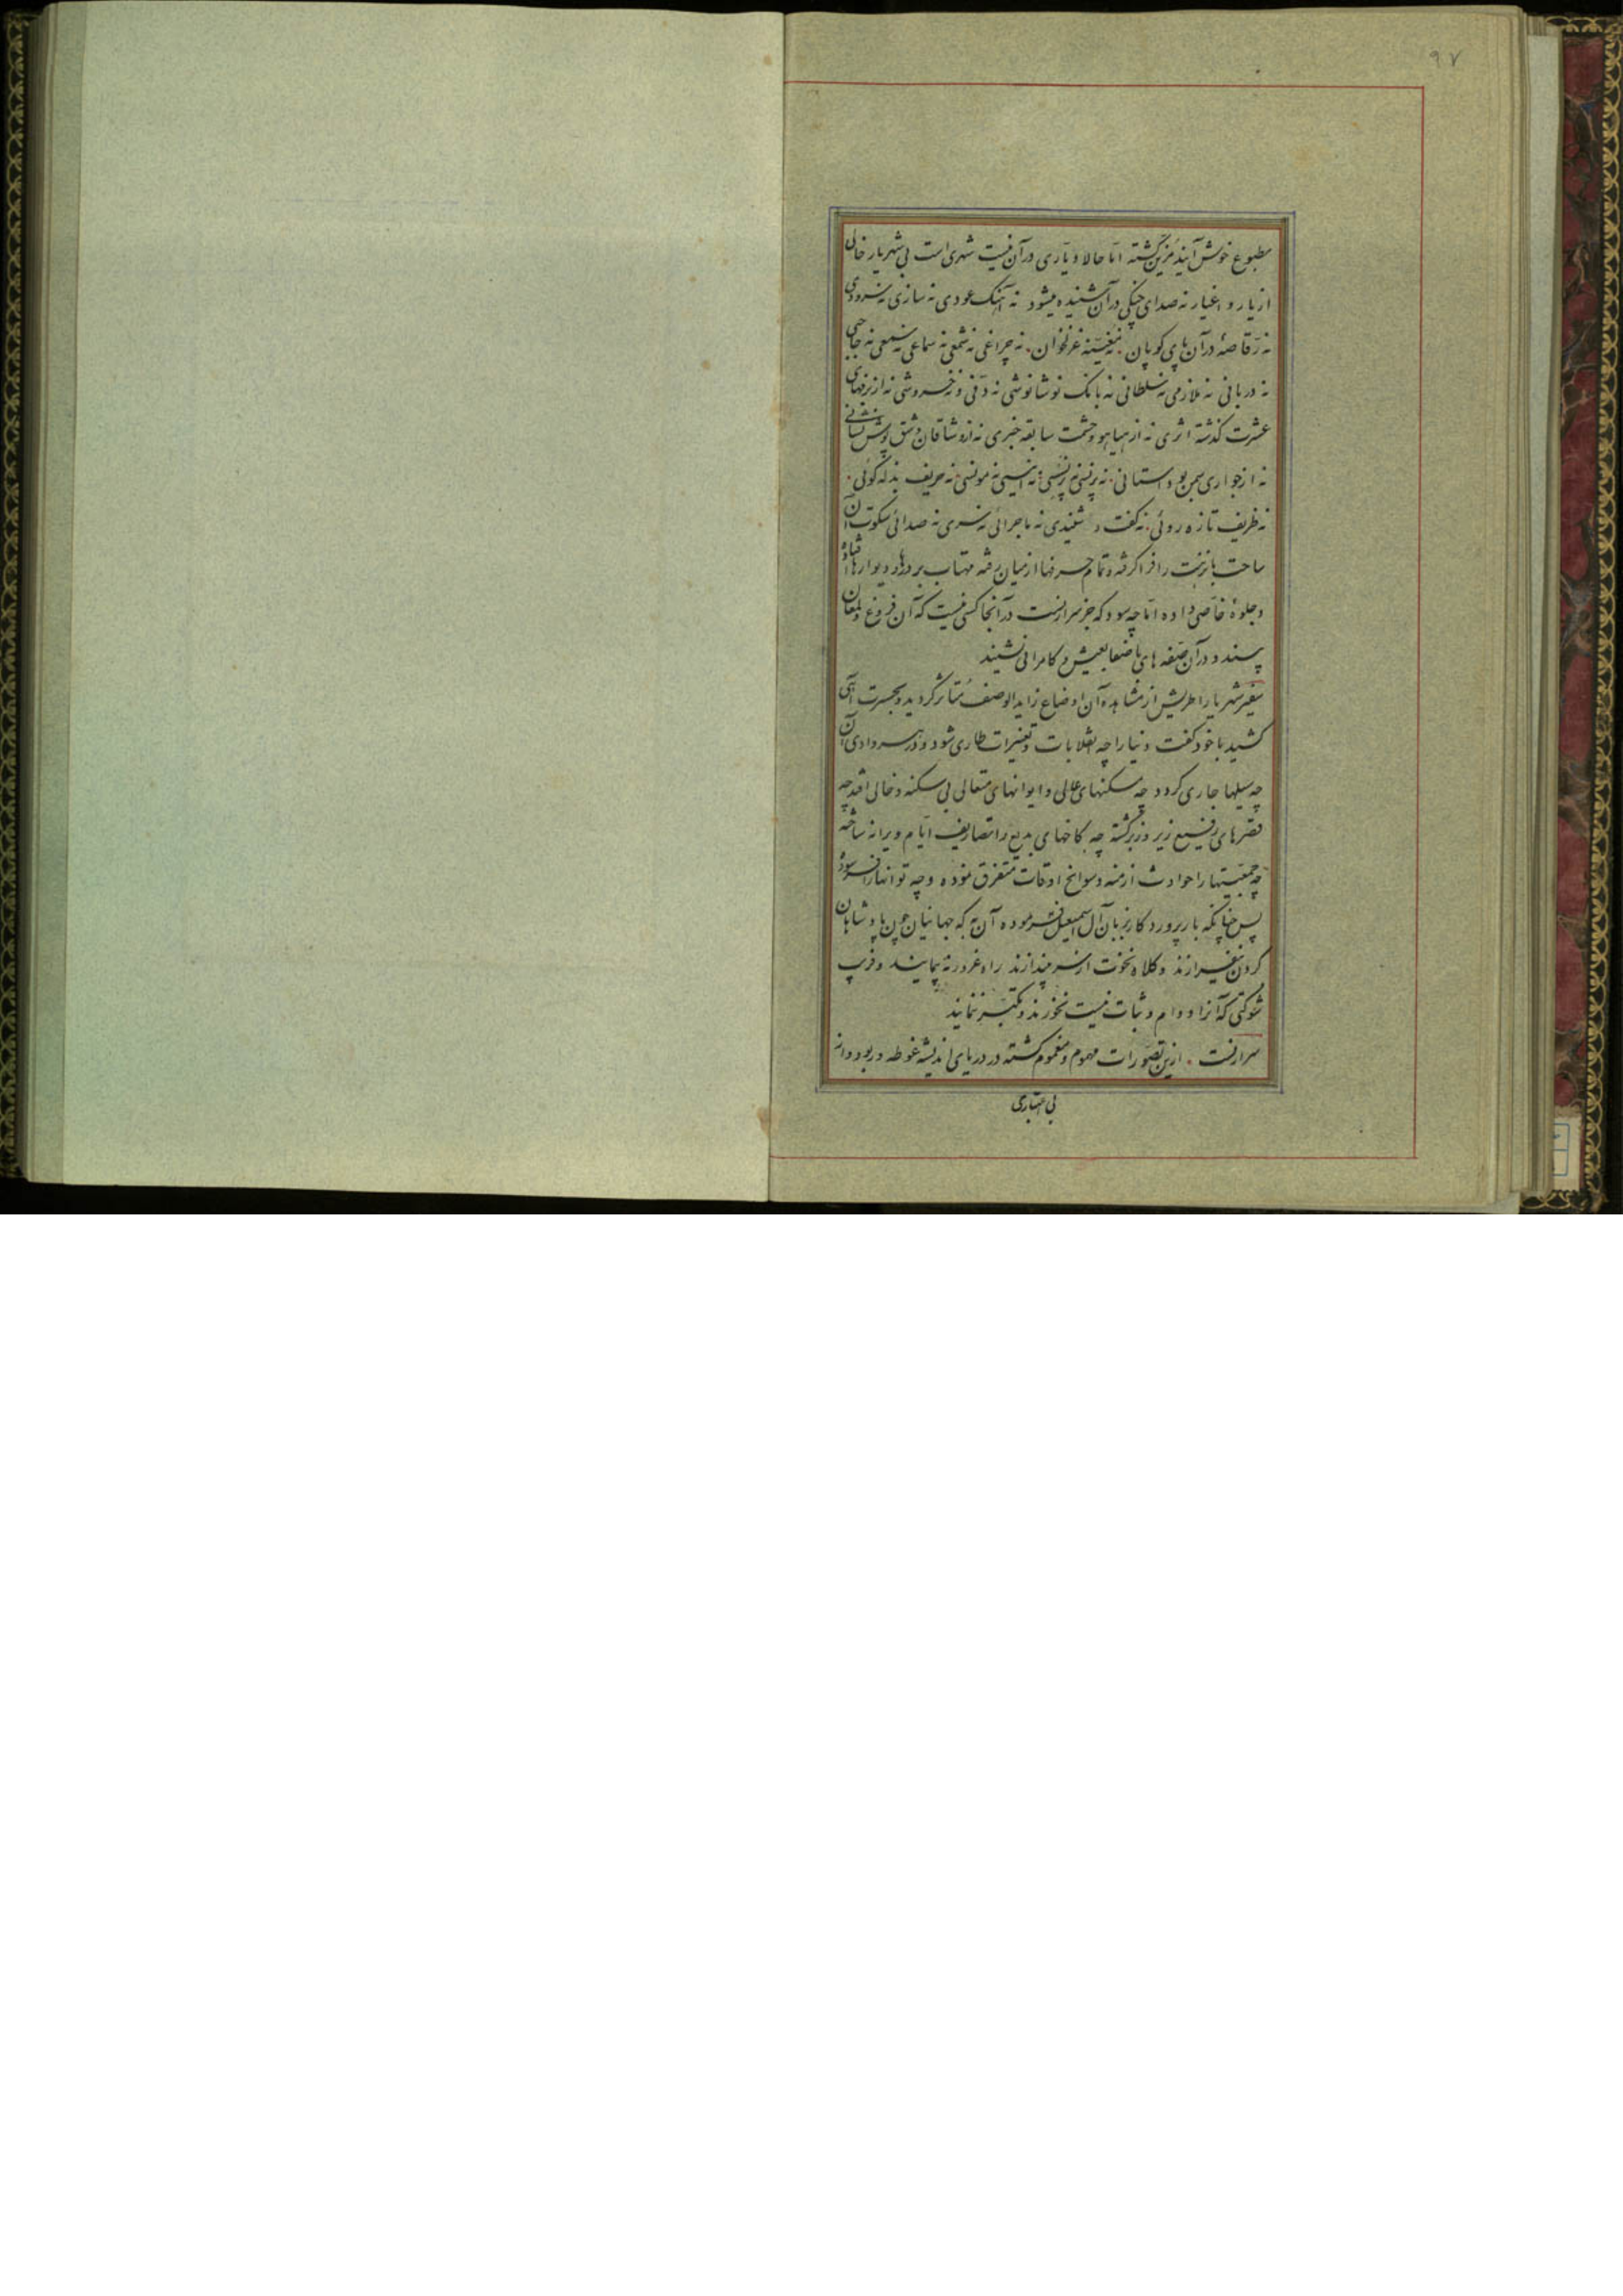 ۹۷
مطبوع خوش آیند مزین گشته اما حالا دیاری در آن نیست شهری است بی شهریار خالی
از یار و اغیار نه صدای چنگی در آن شنیده میشود نه آهنگ عودی نه سازی نه سرودی
نه رقاصهٔ در آن پای کوبان. نه مغنیهٔ غزلخوان. نه چراغی نه شمعی نه سماعی نه سمعی نه حاجبی
نه دربانی نه ملازمی نه سلطانی نه بانک نوشانوشی نه دفی و نه خروشی نه از بزمهای
عشرت گذشته اثری نه از هیاهو و حشمت سابقه خبری نه از وشاقان دمشق پوش نشانی
نه از جواری سمن بو داستانی. نه پرنسی نه پرنسسی نه انیسی نه مونسی. نه حریف بذله گوئی.
نه ظریف تازه روئی. نه گفت و شنیدی نه ماجرائی نه سری نه صدائی سکوت آن
ساحت با نزهت را فرا گرفته و تمام حرفها از میان رفته مهتاب بر درها و دیوارها افتاده
و جلوهٔ خاصی داده اما چه سود که جز سرارنست در آنجا کسی نیست که آن فروغ و لمعان
پسندد و در آن صفه های با صفا بعیش و کامرانی نشیند
سفیر شهریار اطریش از مشاهده آن اوضاع زاید الوصف متأثر گردید و بحسرت آهی
کشید با خود گفت دنیا را چه انقلابات و تغییرات طاری شود و در هر وادی آن
چه سیلها جاری گردد چه مسکنهای عالی و ایوانهای متعالی بی سکنه و خالی افتد چه
قصرهای رفیع زیر و زبر گشته چه کاخهای بدیع را تصاریف ایام ویرانه ساخته
چه جمعیتها را حوادث ازمنه و سوانح اوقات متفرق نموده و چه توانها را فرسوده
پس چنانکه بار پروردگار بزبان آل اسمعیل فرموده آن به که جهانیان چون پادشاهان
گردن نیفرازند و کلاه نخوت از سر بیندازند راه غرور نه پیمایند و فریب
شوکتی که آنرا دوام و ثبات نیست نخورند و تکبر ننمایند
سرارنست . ازین تصورات مهموم و مغموم گشته در دریای اندیشه غوطه ور بود و از
بی اعتباری